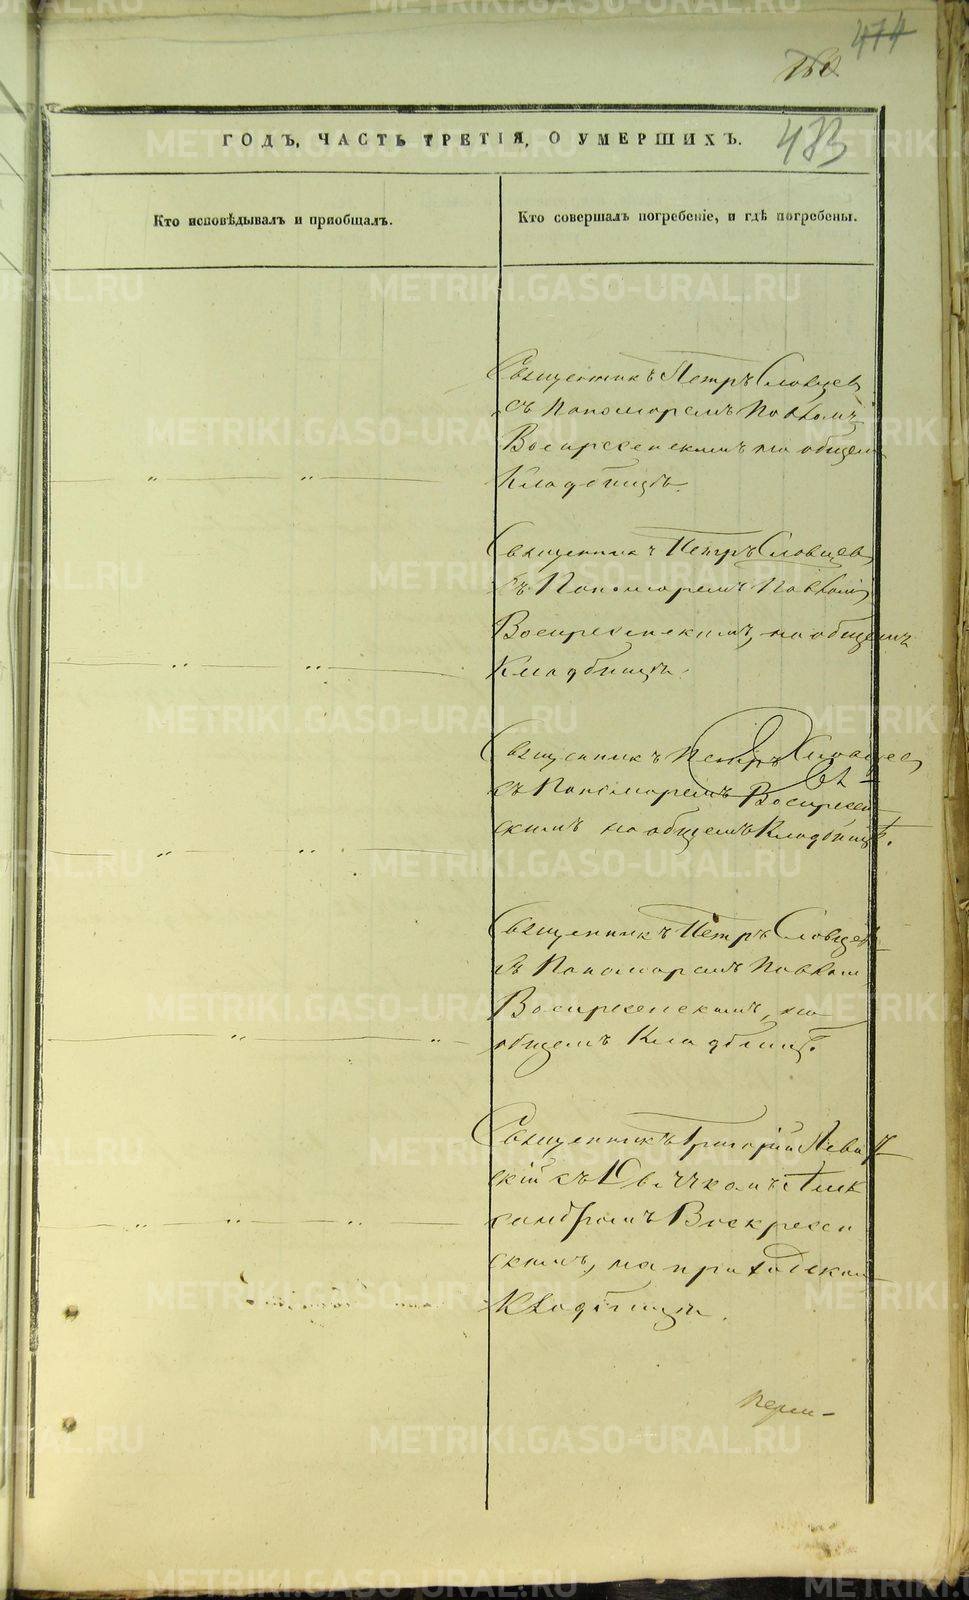 474
473
ГОДЪ, ЧАСТЬ ТРЕТІЯ, О УМЕРШИХЪ.
Кто исповѣдывалъ и приобщалъ.
Кто совершалъ погребеніе, и гдѣ погребены.
Священникъ Петръ Словцев
съ Пономаремъ Павломъ
Воскресенскимъ на общем
Кладбищѣ.
Священникъ Петръ Словцев
съ Пономаремъ Павломъ
Воскресенскимъ, на общемъ
Кладбищѣ.
Священникъ Петръ Словцев
съ Пономаремъ Воскресен
скимъ на общемъ Кладбищѣ.
Священникъ Петръ Словцевъ
съ Пономаремъ Павлом
Воскресенскимъ, на
общемъ Кладбищѣ.
Священникъ Григорій Леви
скій съ Дьячкомъ Алек
сандромъ Воскресен
скимъ, на приходском
Кладбищѣ.
METRIKI.GASO-URAL.RU